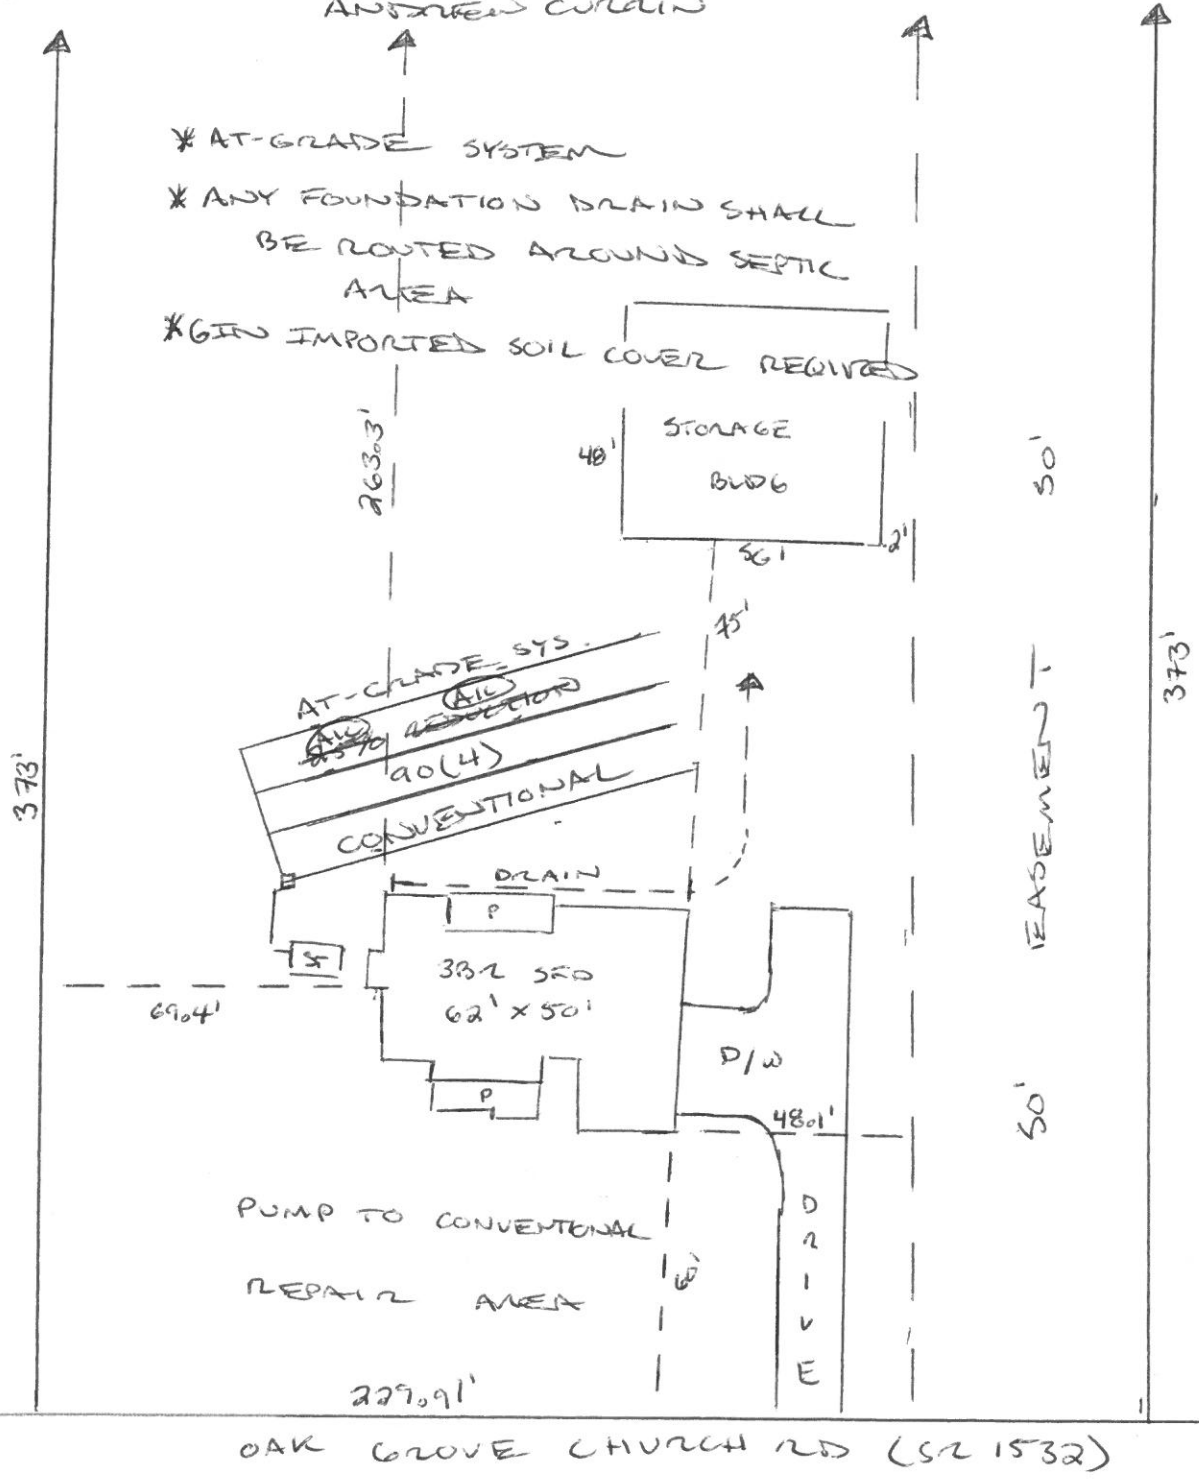 ANDREW CURRIN
* AT-GRADE SYSTEM
* ANY FOUNDATION DRAIN SHALL
BE ROUTED AROUND SEPTIC
AREA
* 6IN IMPORTED SOIL COVER REQUIRED
263.3'
48'
STORAGE
BLDG
2'
56'
50'
75'
AT-GRADE SYS.
25% REDUCTION
90(4)
CONVENTIONAL
373'
373'
EASEMENT
DRAIN
P
ST
3BR SFD
62' x 50'
69.4'
D/W
P
48.1'
50'
PUMP TO CONVENTIONAL
REPAIR AREA
60'
DRIVE
229.91'
OAK GROVE CHURCH RD (SR 1532)